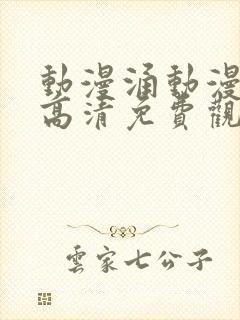 動漫涌動漫
高清免費觀
雲家七公子